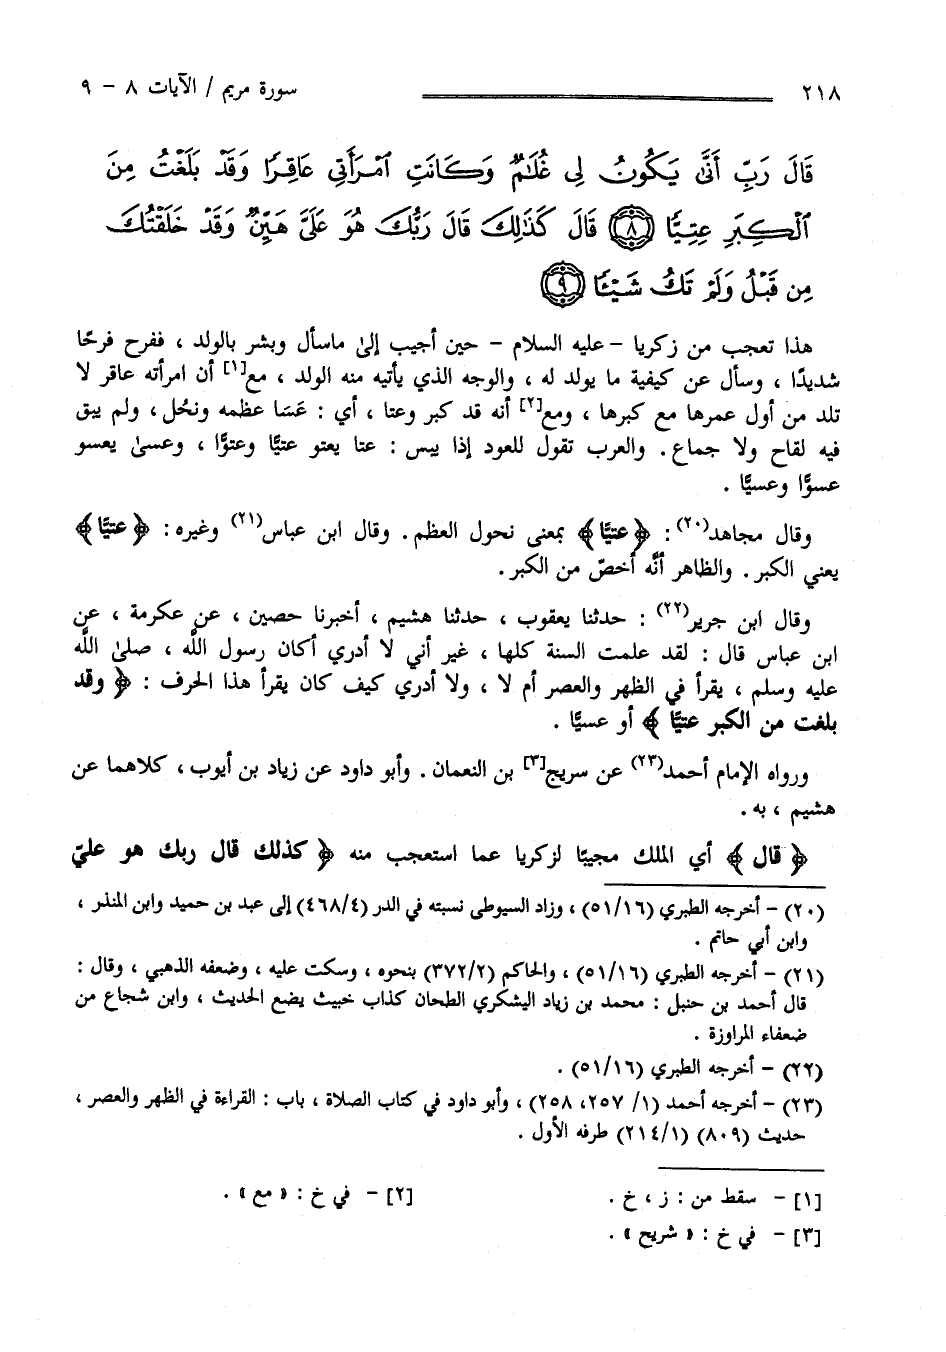 ٢١٨ سورة مريم / الآيات ٨ - ٩
قَالَ رَبِّ أَنَّىٰ يَكُونُ لِي غُلَامٌ وَكَانَتِ امْرَأَتِي عَاقِرًا وَقَدْ بَلَغْتُ مِنَ
الْكِبَرِ عِتِيًّا ٨ قَالَ كَذَٰلِكَ قَالَ رَبُّكَ هُوَ عَلَيَّ هَيِّنٌ وَقَدْ خَلَقْتُكَ
مِن قَبْلُ وَلَمْ تَكُ شَيْئًا ٩
هذا تعجب من زكريا - عليه السلام - حين أجيب إلىٰ ماسأل وبشر بالولد ، ففرح فرحًا
شديدًا ، وسأل عن كيفية ما يولد له ، والوجه الذي يأتيه منه الولد ، مع[١] أن امرأته عاقر لا
تلد من أول عمرها مع كبرها ، ومع[٢] أنه قد كبر وعتا ، أي : عَسَا عظمه ونحُل ، ولم يبق
فيه لقاح ولا جماع. والعرب تقول للعود إذا يبس : عتا يعتو عتيًّا وعتوًّا ، وعسىٰ يعسو
عسوًّا وعسيًّا .
وقال مجاهد(٢٠) : ﴿ عتيًّا ﴾ بمعنى نحول العظم. وقال ابن عباس(٢١) وغيره : ﴿ عتيًّا ﴾
يعني الكبر. والظاهر أنَّه أخصّ من الكبر.
وقال ابن جرير(٢٢) : حدثنا يعقوب ، حدثنا هشيم ، أخبرنا حصين ، عن عكرمة ، عن
ابن عباس قال : لقد علمت السنة كلها ، غير أني لا أدري أكان رسول اللَّه ، صلىٰ اللَّه
عليه وسلم ، يقرأ في الظهر والعصر أم لا ، ولا أدري كيف كان يقرأ هذا الحرف : ﴿ وقد
بلغت من الكبر عتيًّا ﴾ أو عسيًّا .
ورواه الإمام أحمد(٢٣) عن سريج[٣] بن النعمان. وأبو داود عن زياد بن أيوب ، كلاهما عن
هشيم ، به.
﴿ قال ﴾ أي الملك مجيبًا لزكريا عما استعجب منه ﴿ كذلك قال ربك هو عليّ
(٢٠) - أخرجه الطبري (٥١/١٦) ، وزاد السيوطى نسبته في الدر (٤٦٨/٤) إلى عبد بن حميد وابن المنذر ،
وابن أبي حاتم .
(٢١) - أخرجه الطبري (٥١/١٦) ، والحاكم (٣٧٢/٢) بنحوه ، وسكت عليه ، وضعفه الذهبي ، وقال :
قال أحمد بن حنبل : محمد بن زياد اليشكري الطحان كذاب خبيث يضع الحديث ، وابن شجاع من
ضعفاء المراوزة .
(٢٢) - أخرجه الطبري (٥١/١٦) .
(٢٣) - أخرجه أحمد (١/ ٢٥٧، ٢٥٨) ، وأبو داود في كتاب الصلاة ، باب : القراءة في الظهر والعصر ،
حديث (٨٠٩) (٢١٤/١) طرفه الأول .
[١] - سقط من : ز ، خ . [٢] - في خ : « مع » .
[٣] - في خ : « شريح » .